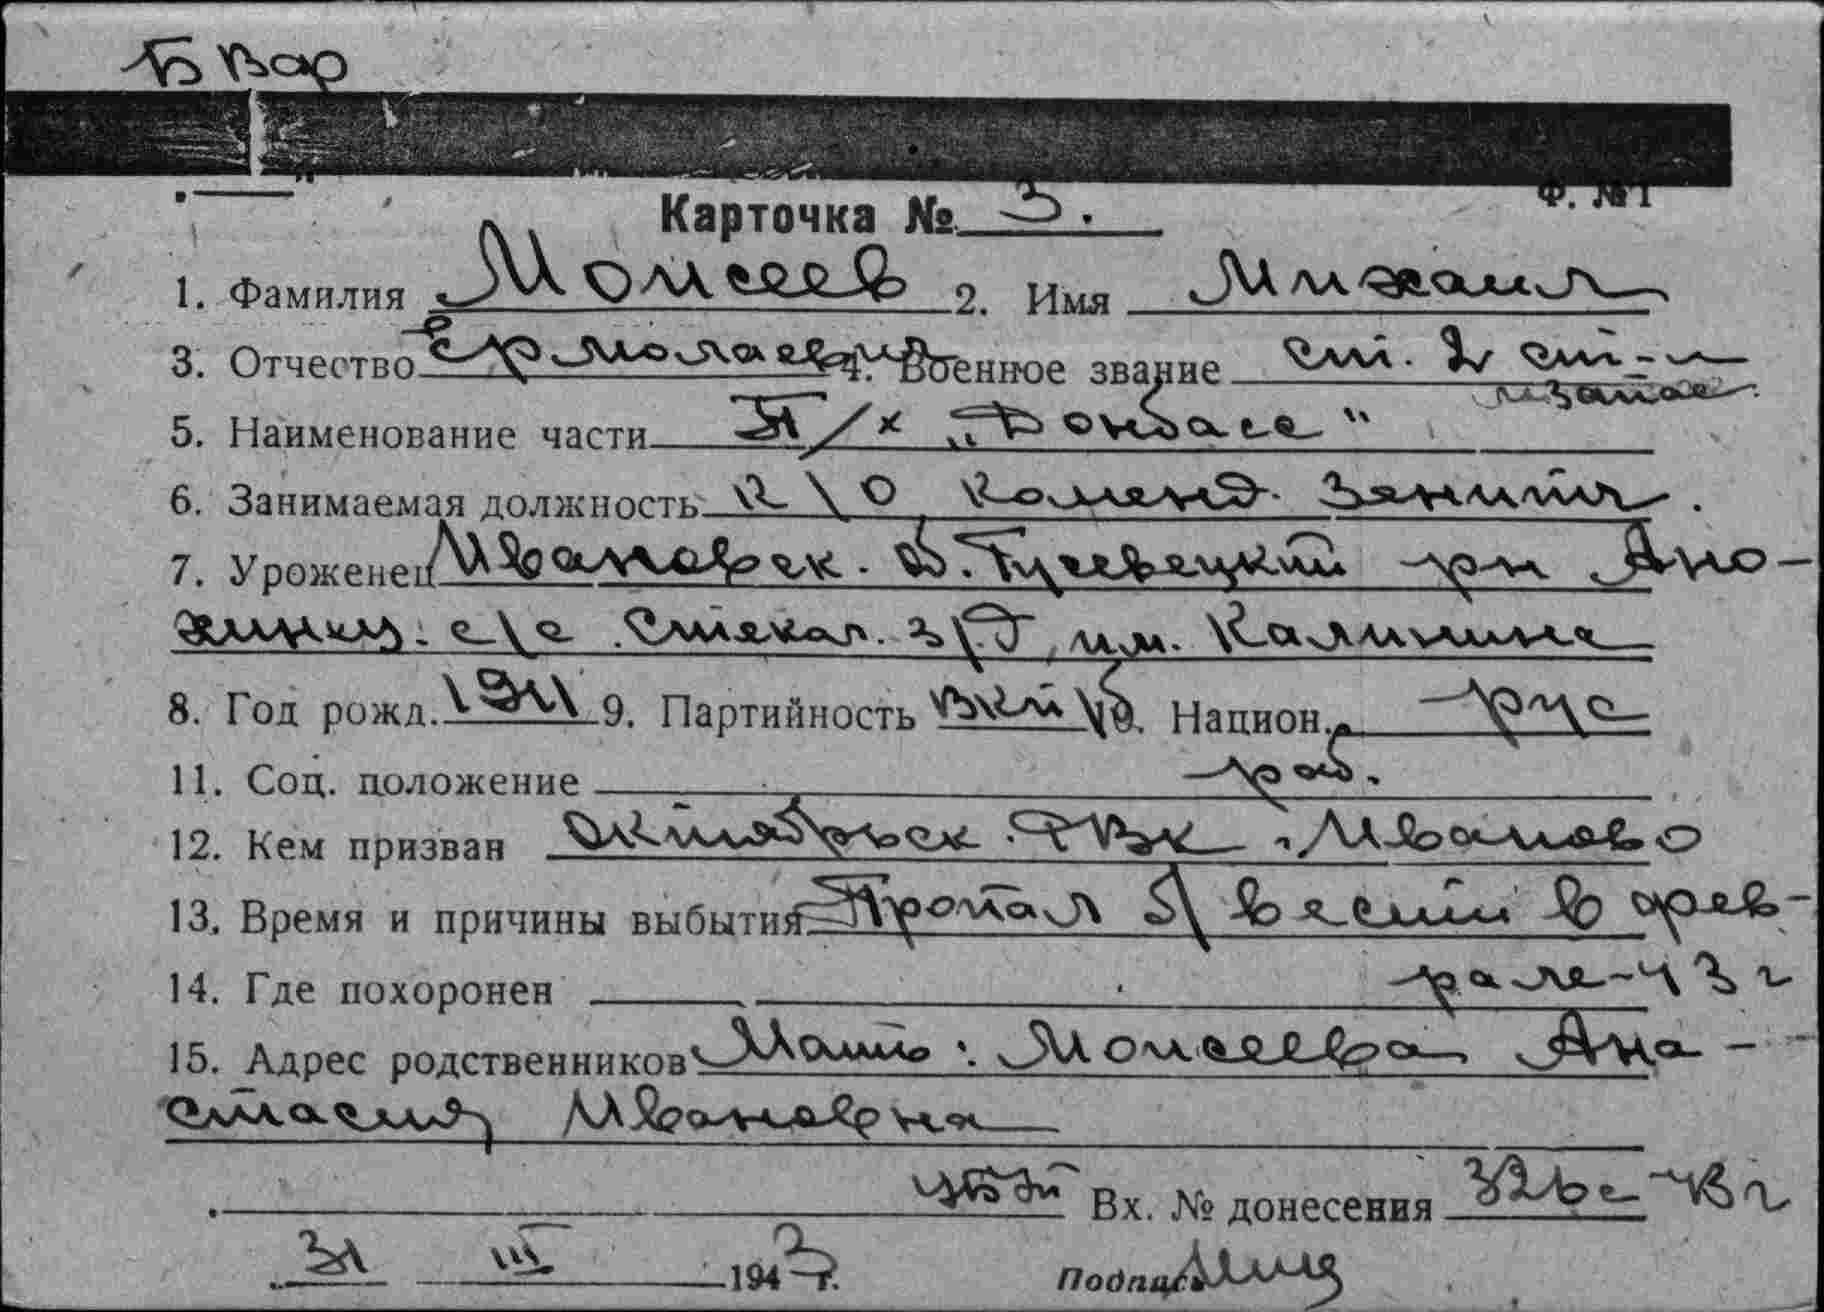 Карточка № 3.
Ф. №1
1. Фамилия Моисеев 2. Имя Михаил
3. Отчество Ермолаевич 4. Военное звание ст. 2 ст-и
запаса
5. Наименование части П/х „Донбасс"
6. Занимаемая должность к\о команд. зенитч.
7. Уроженец Ивановск. о. рн Ано-
с\с им. Калинина
8. Год рожд. 1911 9. Партийность ВКП\б 10. Национ. рус
11. Соц. положение раб.
12. Кем призван Октябрьск. РВК, Иваново
13. Время и причины выбытия Пропал б\вести в фев-
14. Где похоронен рале-43 г
15. Адрес родственников Мать: Моисеева Ана-
стасия Ивановна
Вх. № донесения 326с-43 г
31 III 1943 г. Подпись